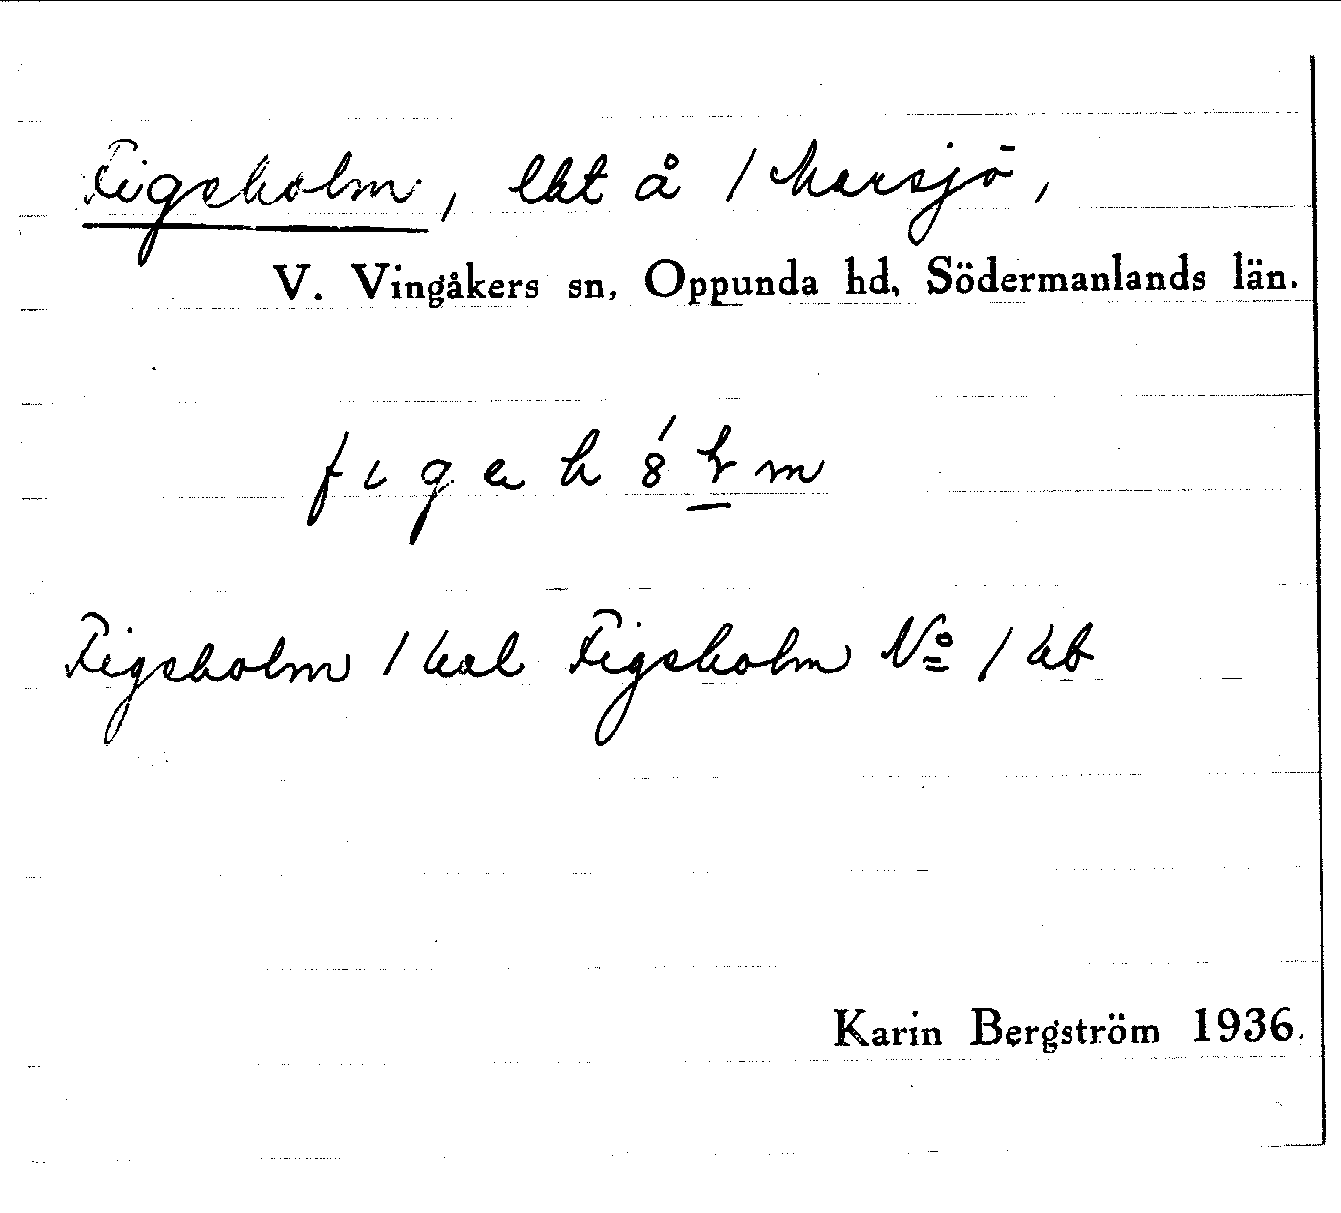 Figeholm, lht å / Marsjö,
V. Vingåkers sn, Oppunda hd, Södermanlands län.
Figeholm / kal Figeholm Nº / kb
Karin Bergström 1936.